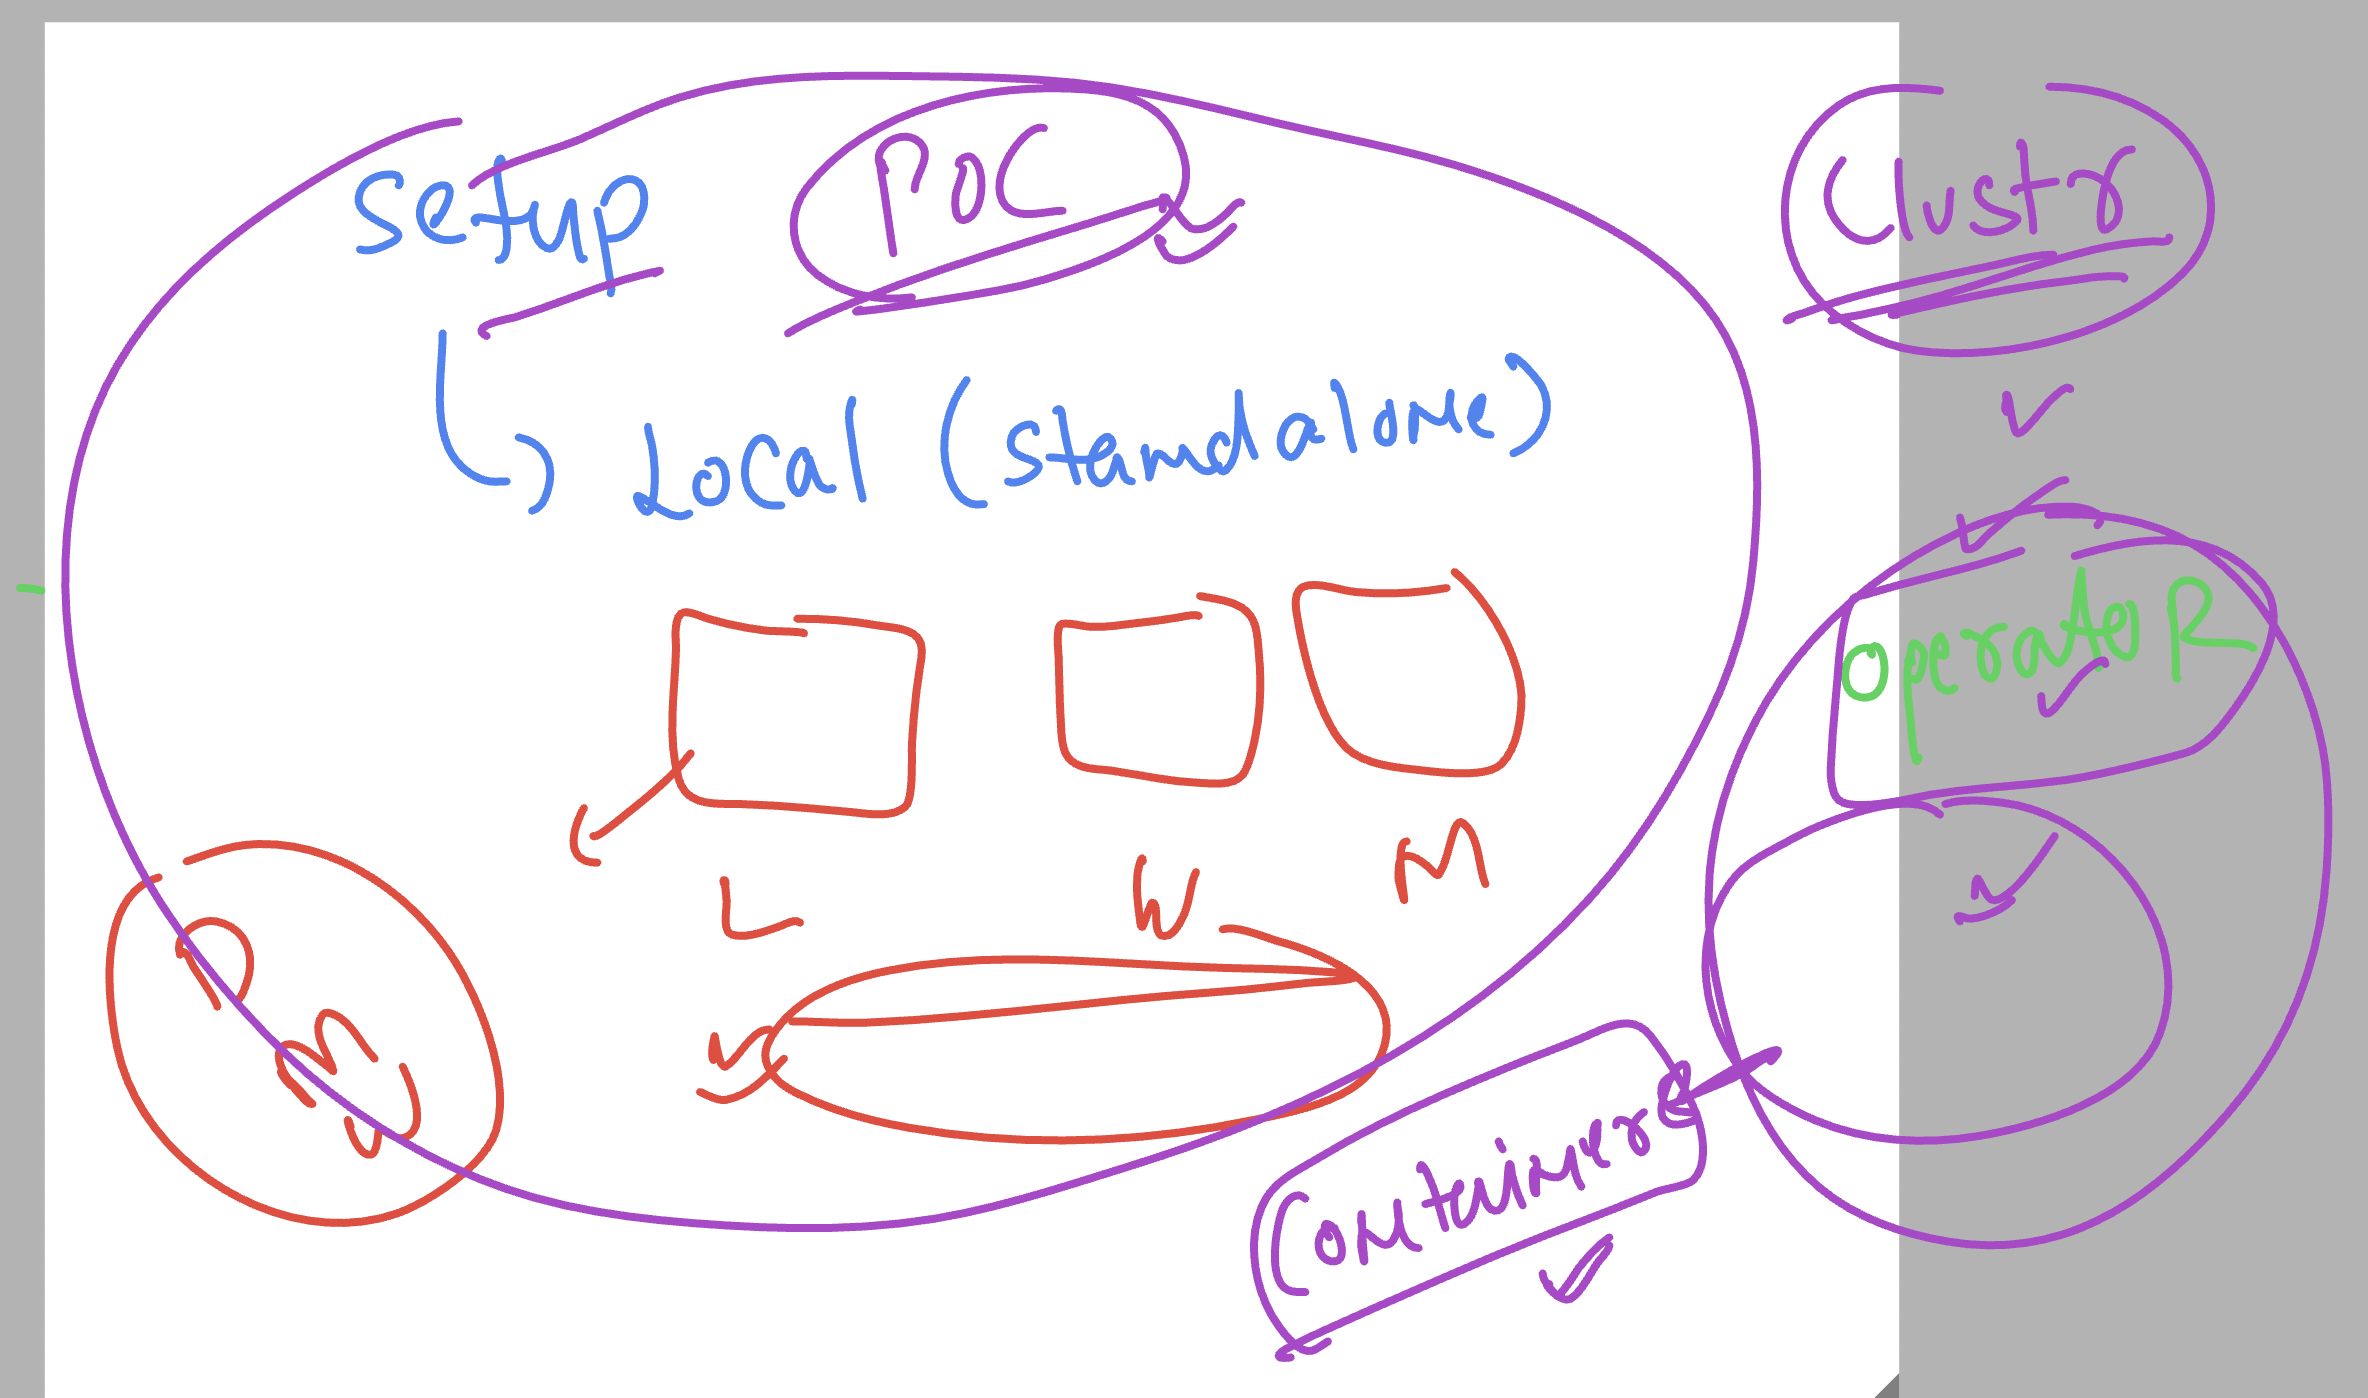 Setup
POC
Clustr
Local (standalone)
OperatoR
L
W
M
Containers